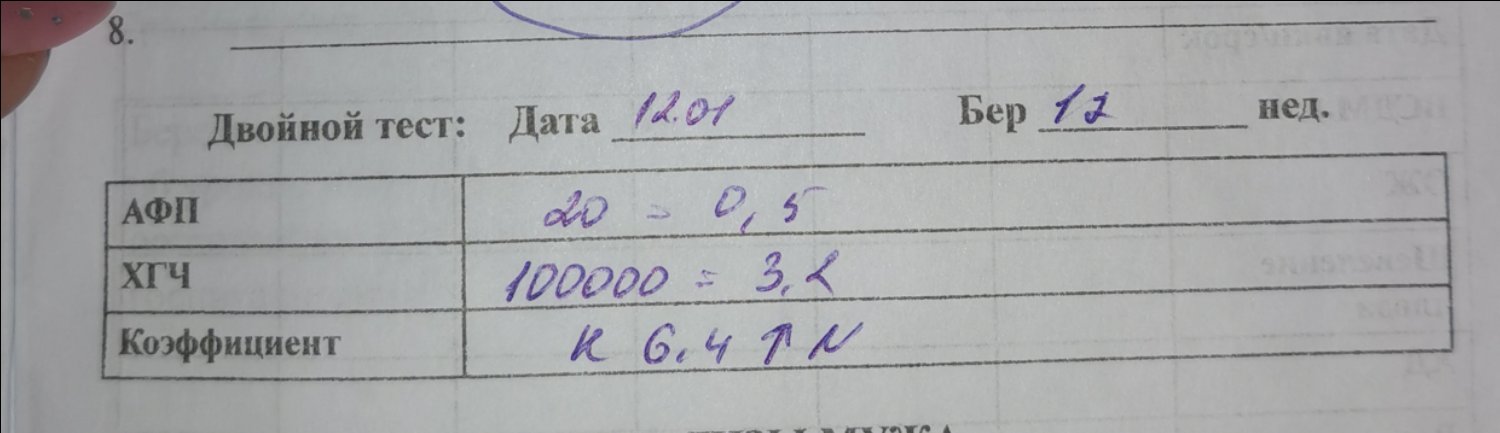 8.
Двойной тест: Дата 12.01 Бер 17 нед.
АФП 20 = 0,5
ХГЧ 100000 = 3.2
Коэффициент К 6.4 ↑ N